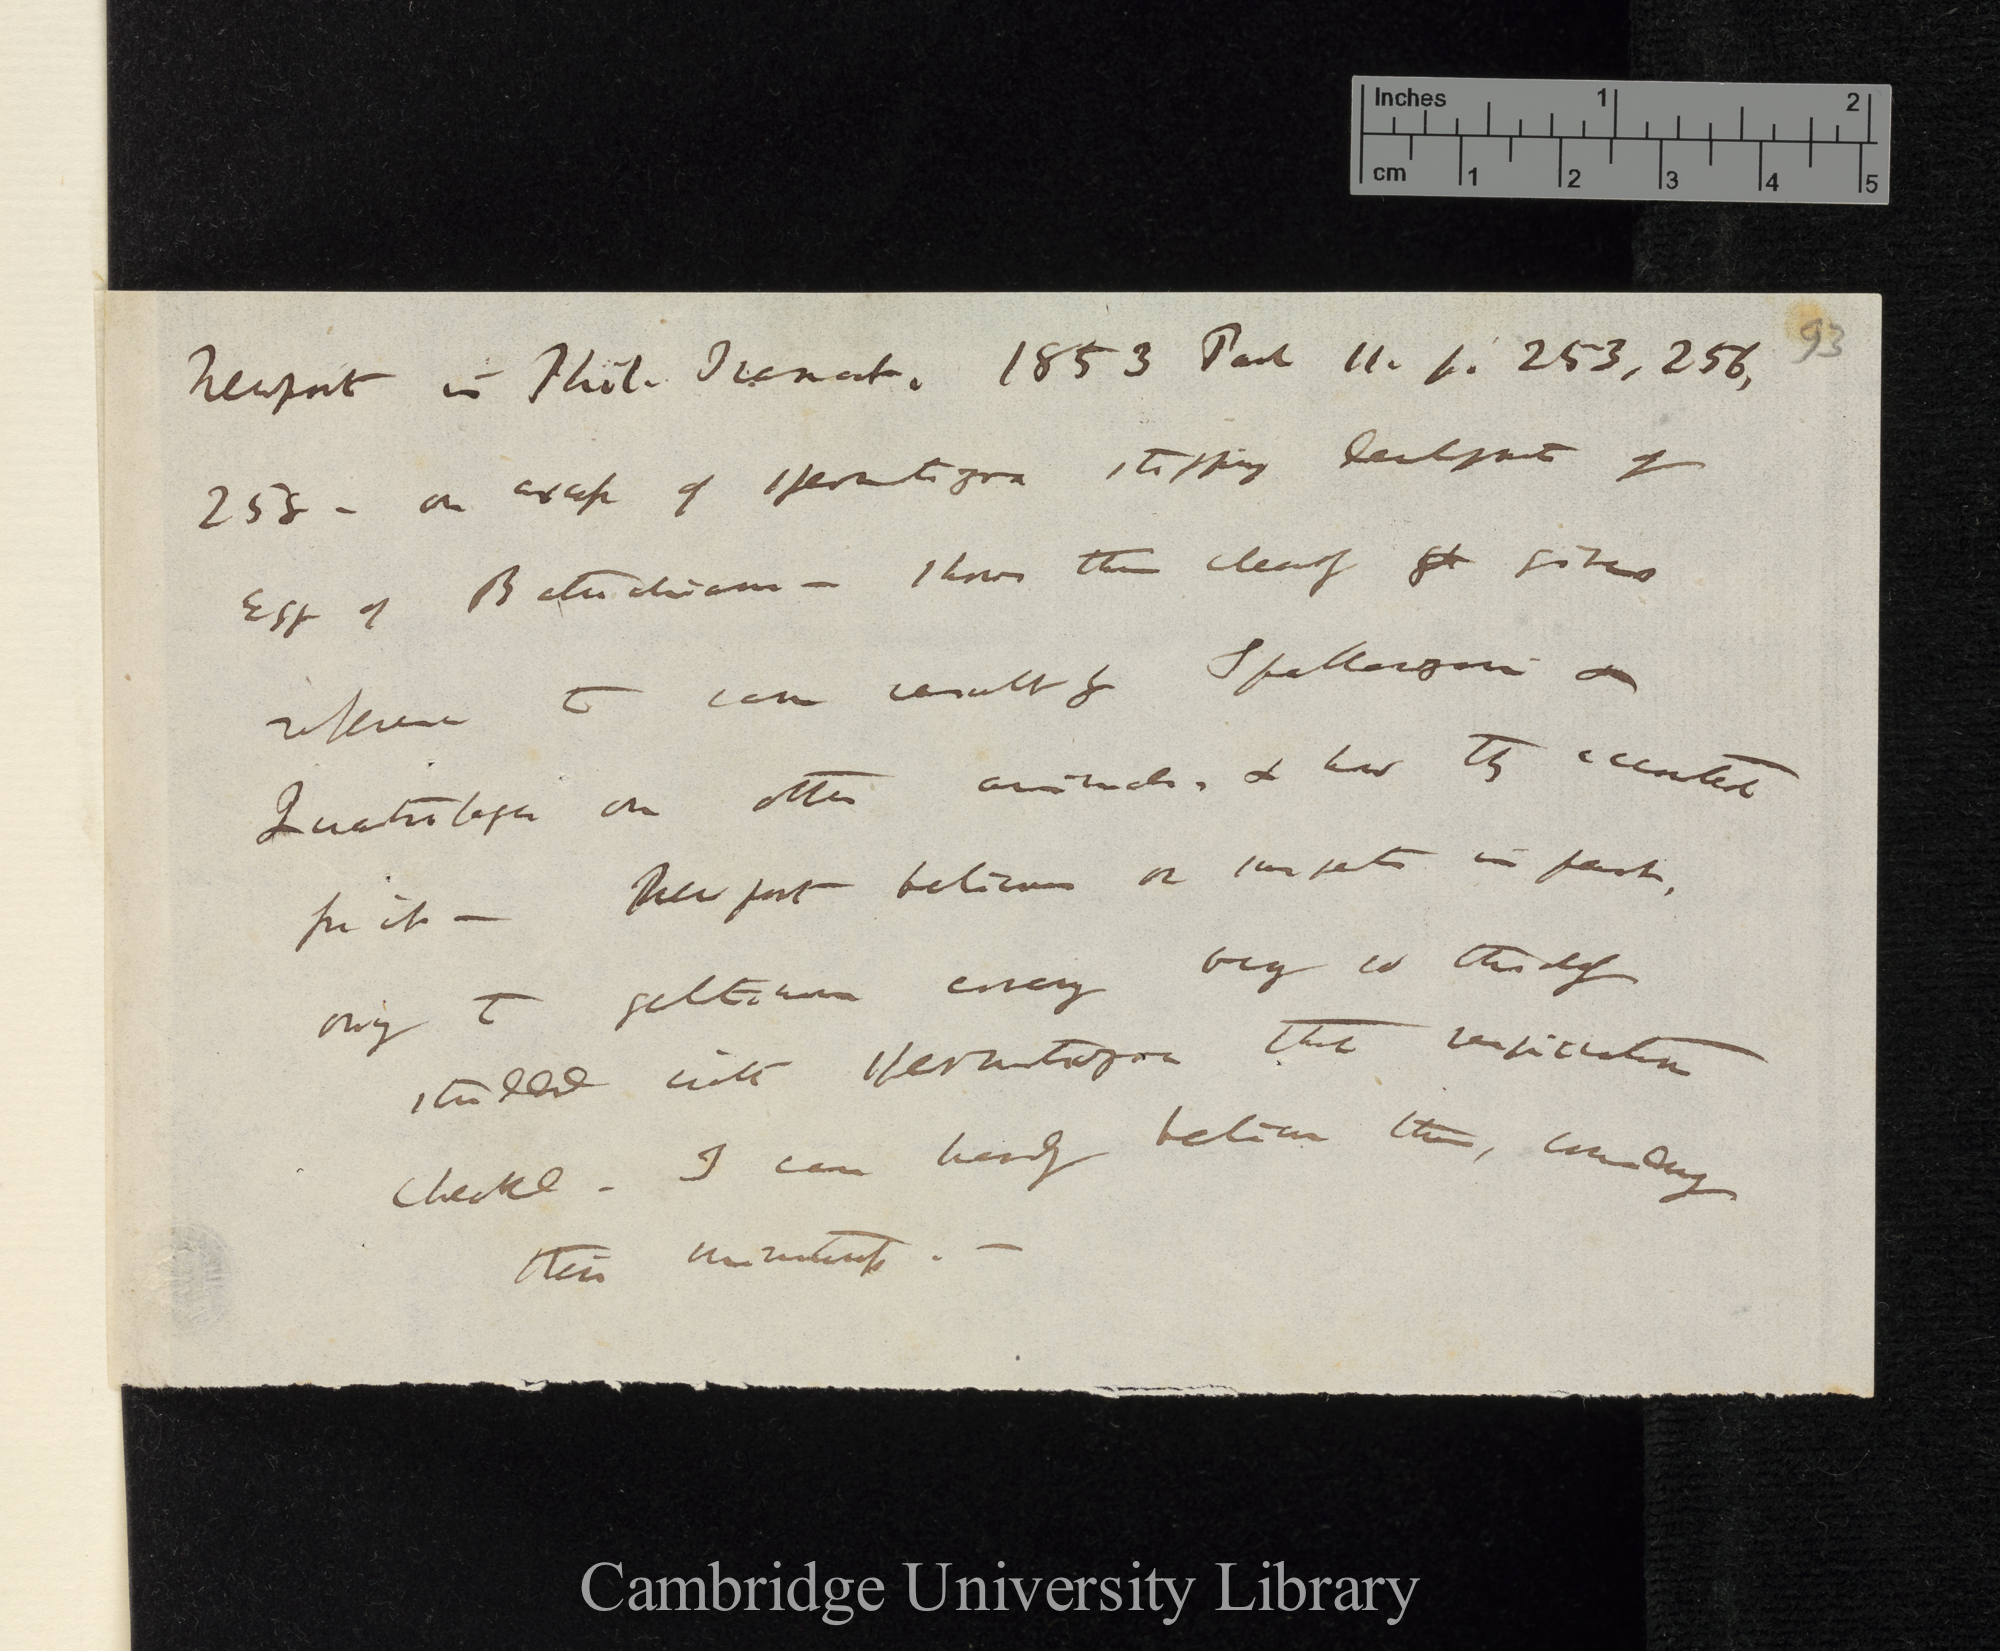 Inches 1 2
cm 1 2 3 4 5
93
Newport in Phil. Transact. 1853 Part II. p. 253, 256,
258 - on excess of Spermatozoa stopping developmt of
Egg of Batrachians — shows this clearly & gives
reference to same results of Spallanzani &
Quatrefages on other animals. & how they accounted
for it — Newport believes or suspects in part,
owing to gelatinous covering being so thickly
studded with Spermatozoa that respiration
checked - I can hardly believe this, considering
their minuteness. —
Cambridge University Library